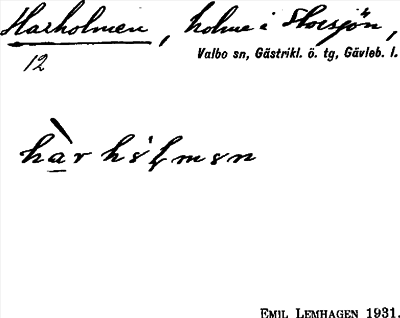 Harholmen, holme i Storsjön,
12
Valbo sn, Gästrikl. ö. tg, Gävleb. l.
EMIL LEMHAGEN 1931.